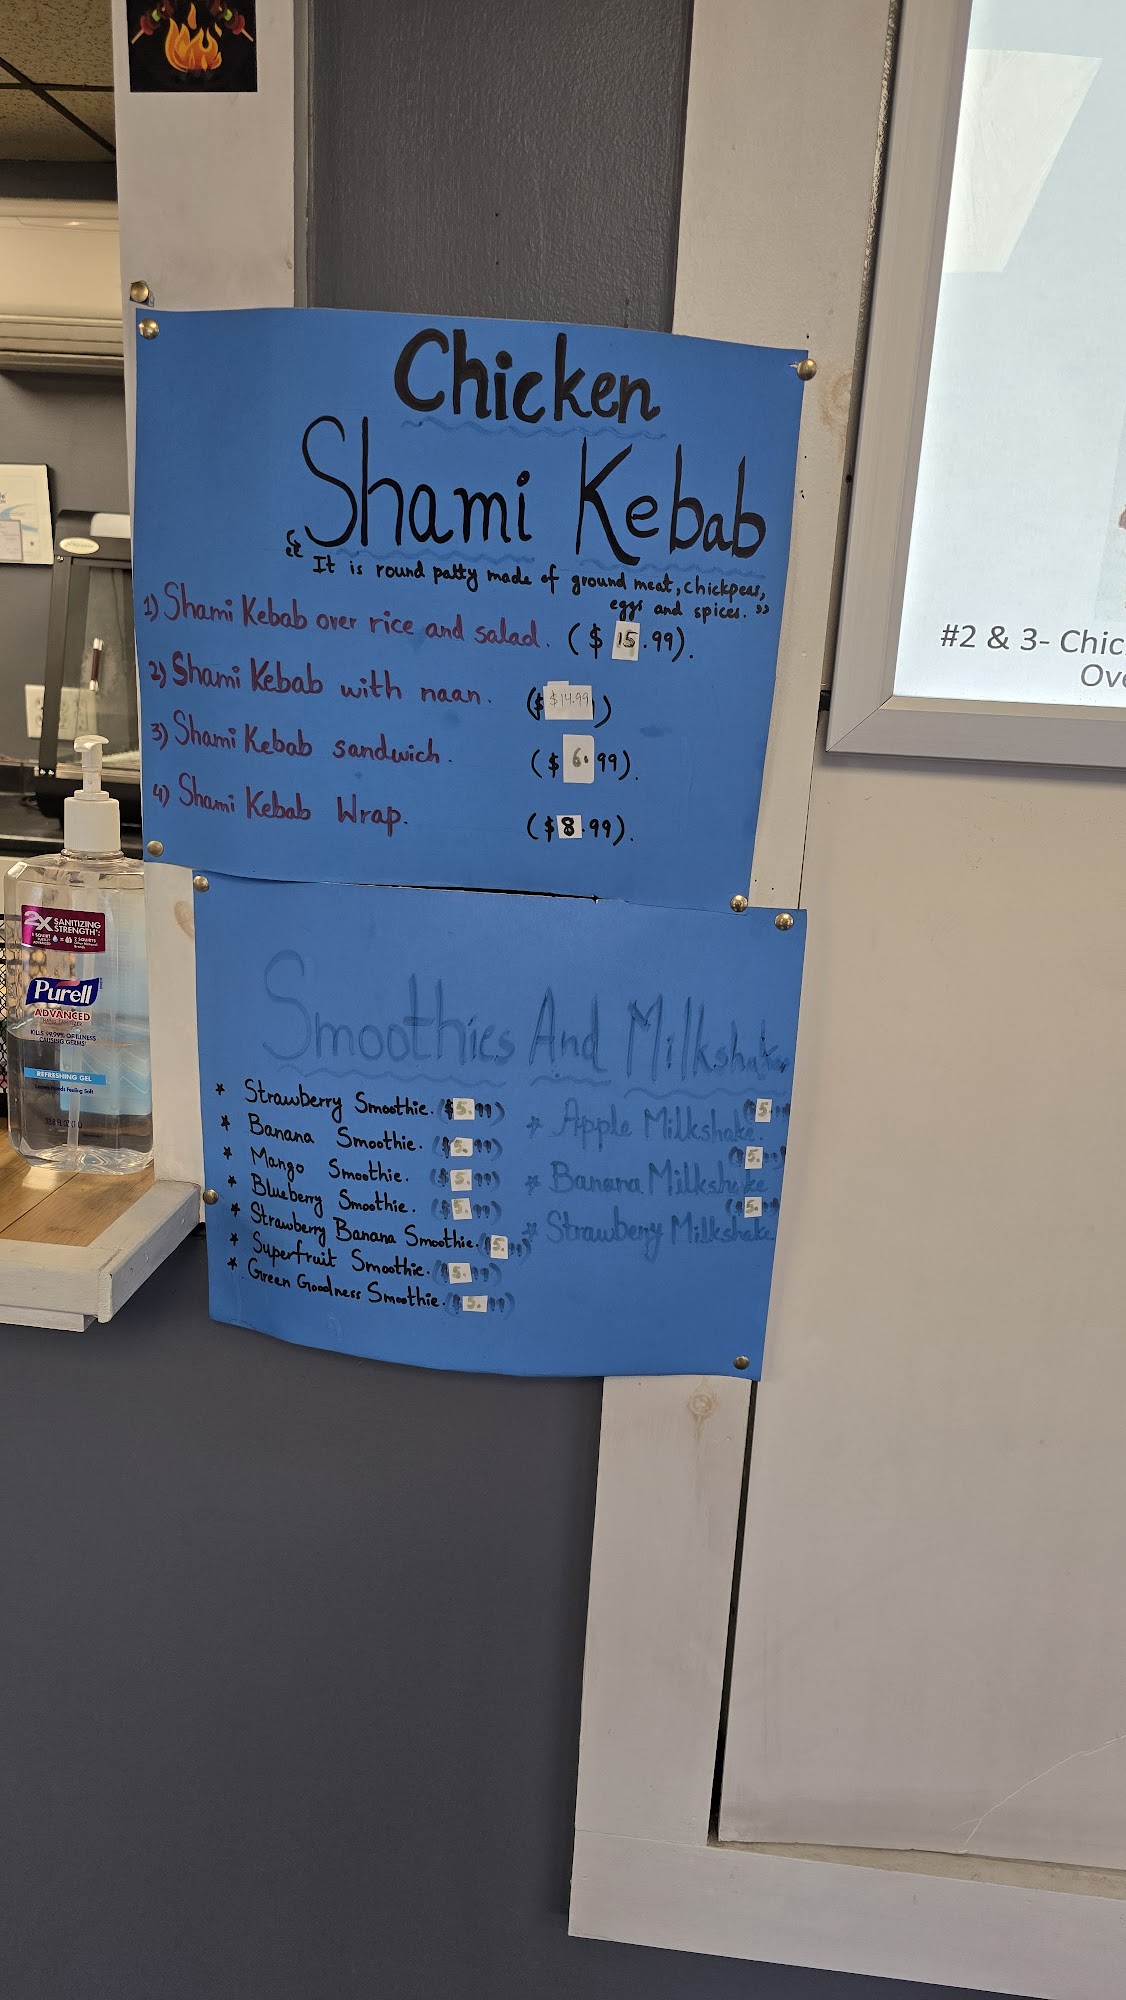 Chicken
Shami Kebab
“ It is round patty made of ground meat, chickpeas,
eggs and spices. ”
1) Shami Kebab over rice and salad. ($ 15.99).
2) Shami Kebab with naan. ($ $14.99)
3) Shami Kebab sandwich. ($ 6.99).
4) Shami Kebab Wrap. ($8.99).
Smoothies And Milkshakes
* Strawberry Smoothie. ($5.99)
* Banana Smoothie. ($5.99)
* Mango Smoothie. ($5.99)
* Blueberry Smoothie. ($5.99)
* Strawberry Banana Smoothie. ($5.99)
* Superfruit Smoothie. ($5.99)
* Green Goodness Smoothie. ($5.99)
* Apple Milkshake. ($5.99)
* Banana Milkshake ($5.99)
* Strawberry Milkshake ($5.99)
2X SANITIZING
STRENGTH
Purell
ADVANCED
HAND SANITIZER
KILLS 99.99% OF ILLNESS
CAUSING GERMS
REFRESHING GEL
Leaves Hands Feeling Soft
#2 & 3- Chic
Ove